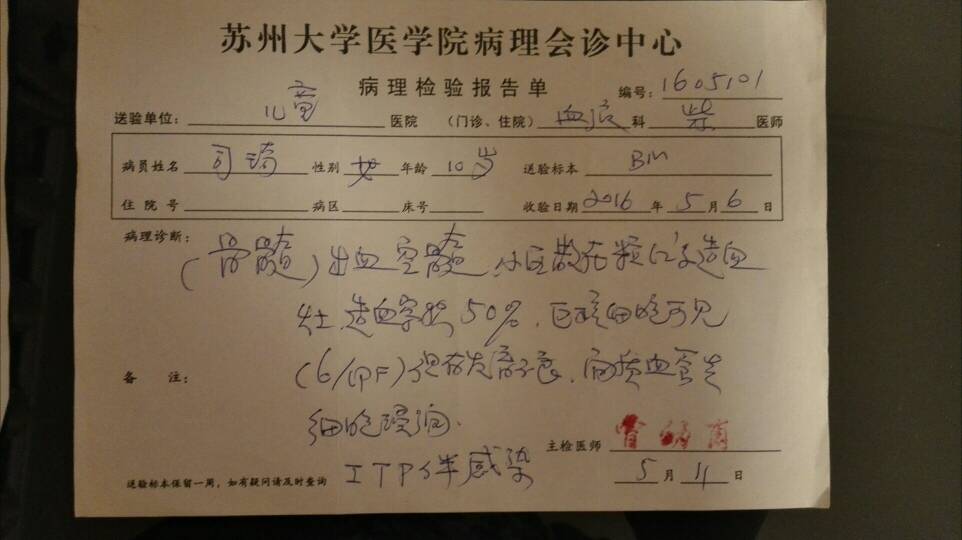 苏州大学医学院病理会诊中心
病理检验报告单 编号: 1605101
送验单位: 儿童 医院 (门诊、住院) 血液 科 柴 医师
病员姓名 司琦 性别 女 年龄 10岁 送验标本 BM
住院号 病区 床号 收验日期 2016 年 5 月 6 日
病理诊断:
(骨髓) 出血空髓,小区散在粒红系造血
灶,造血容积50%,巨核细胞可见
备 注: (6/HPF)
细胞浸润.
主检医师
ITP伴感染
5 月 11 日
送验标本保留一周,如有疑问请及时查询